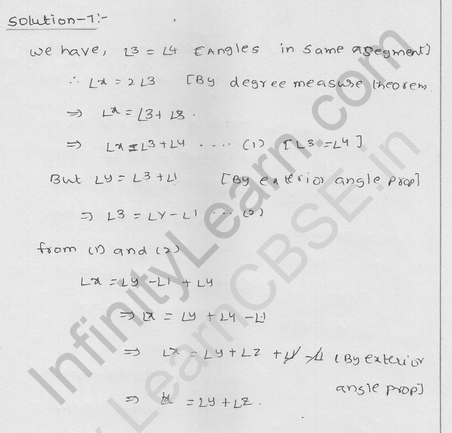 Solution-1:-
We have, ∠3 = ∠4 [Angles in same asegment]
∴ ∠x = 2∠3 [By degree measure theorem
⇒ ∠x = ∠3 + ∠3.
⇒ ∠x = ∠3 + ∠4 .... (1) [∠3 = ∠4]
But ∠y = ∠3 + ∠1 [By exterior angle prop]
⇒ ∠3 = ∠y - ∠1 ... (2)
from (1) and (2)
∠x = ∠y - ∠1 + ∠4
⇒ ∠x = ∠y + ∠4 - ∠1
⇒ ∠x = ∠y + ∠z + ∠1 - ∠1 (By exterior
angle prop]
⇒ ∠x = ∠y + ∠z.
InfinityLearn.com
LearnCBSE.in